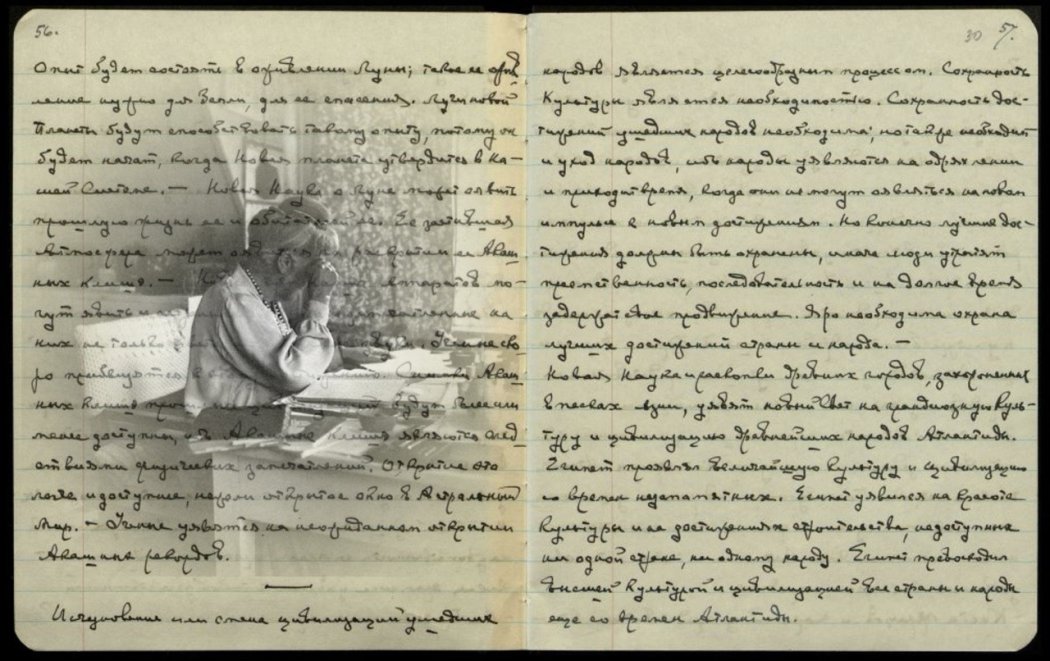 56.
Опыт будет состоять в оживлении Луны; такое ее ожив-
ление нужно для Земли, для ее спасения. Лучи новой
Планеты будут способствовать такому опыту, потому он
будет начат, когда Новая планета утвердится в На-
шей Системе. — Новая Наука о Луне может явить
прошлую жизнь ее и обитателей ее. Ее застывшая
Атмосфера может
ных Клише. — Аппаратов мо-
гут явить и на
них не только Ученые ско-
ро приблизятся к Снимки
ных клише будут более или
менее доступны, ибо клише являются след-
ствиями физических запечатлений. Открытие это
легче и доступнее, нежели открытое окно в Астральный
Мир. — Ученые уявятся на неожиданном открытии
рекордов.
Исчезновение или смена цивилизаций ушедших
30 57.
народов является целесообразным процессом. Сохранность
Культуры является необходимостью. Сохранность дос-
тижений ушедших народов необходима, но также необходим
и уход народов, ибо народы уявляются на одряхлении
и приходит время, когда они не могут оявляться на новом
импульсе к новым достижениям. Но конечно лучшие дос-
тижения должны быть охранены, иначе люди утратят
преемственность, последовательность и на долгое время
задержат свое продвижение. Яро необходима охрана
лучших достижений страны и народа. —
Новая Наука и раскопки Древних городов, захороненных
в песках Азии, уявят новый Свет на грандиозную Куль-
туру и цивилизацию древнейших народов Атлантиды.
Египет проявлял величайшую культуру и цивилизацию
со времен незапамятных. Египет уявился на красоте
Культуры и на достижениях строительства, недоступных
ни одной стране, ни одному народу. Египет превосходил
высшей культурой и цивилизацией все страны и народы
еще со времен Атлантиды.